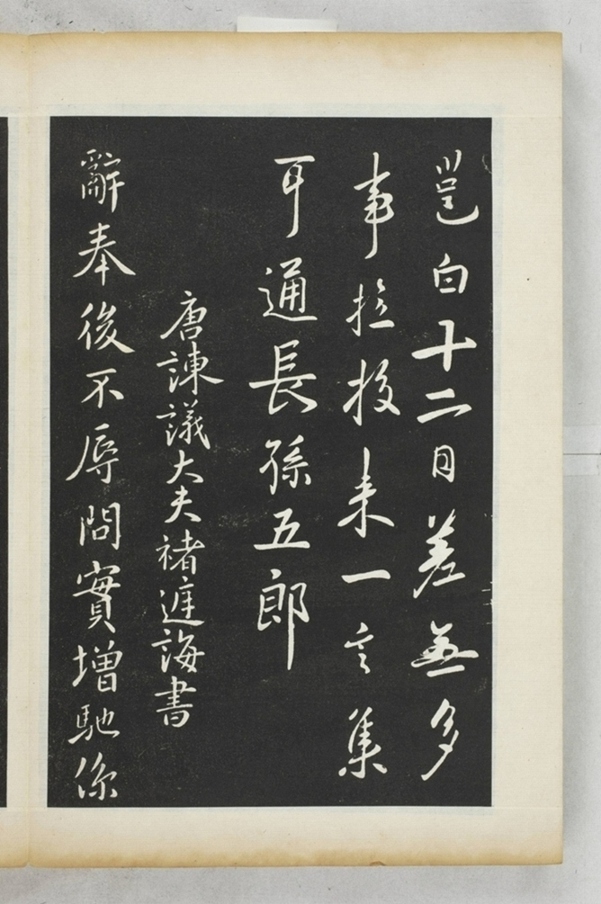 邕白十二日差無多
事拉投来一言集
耳通長孫五郎
唐諫議大夫褚庭誨書
辭奉後不辱問實增馳係